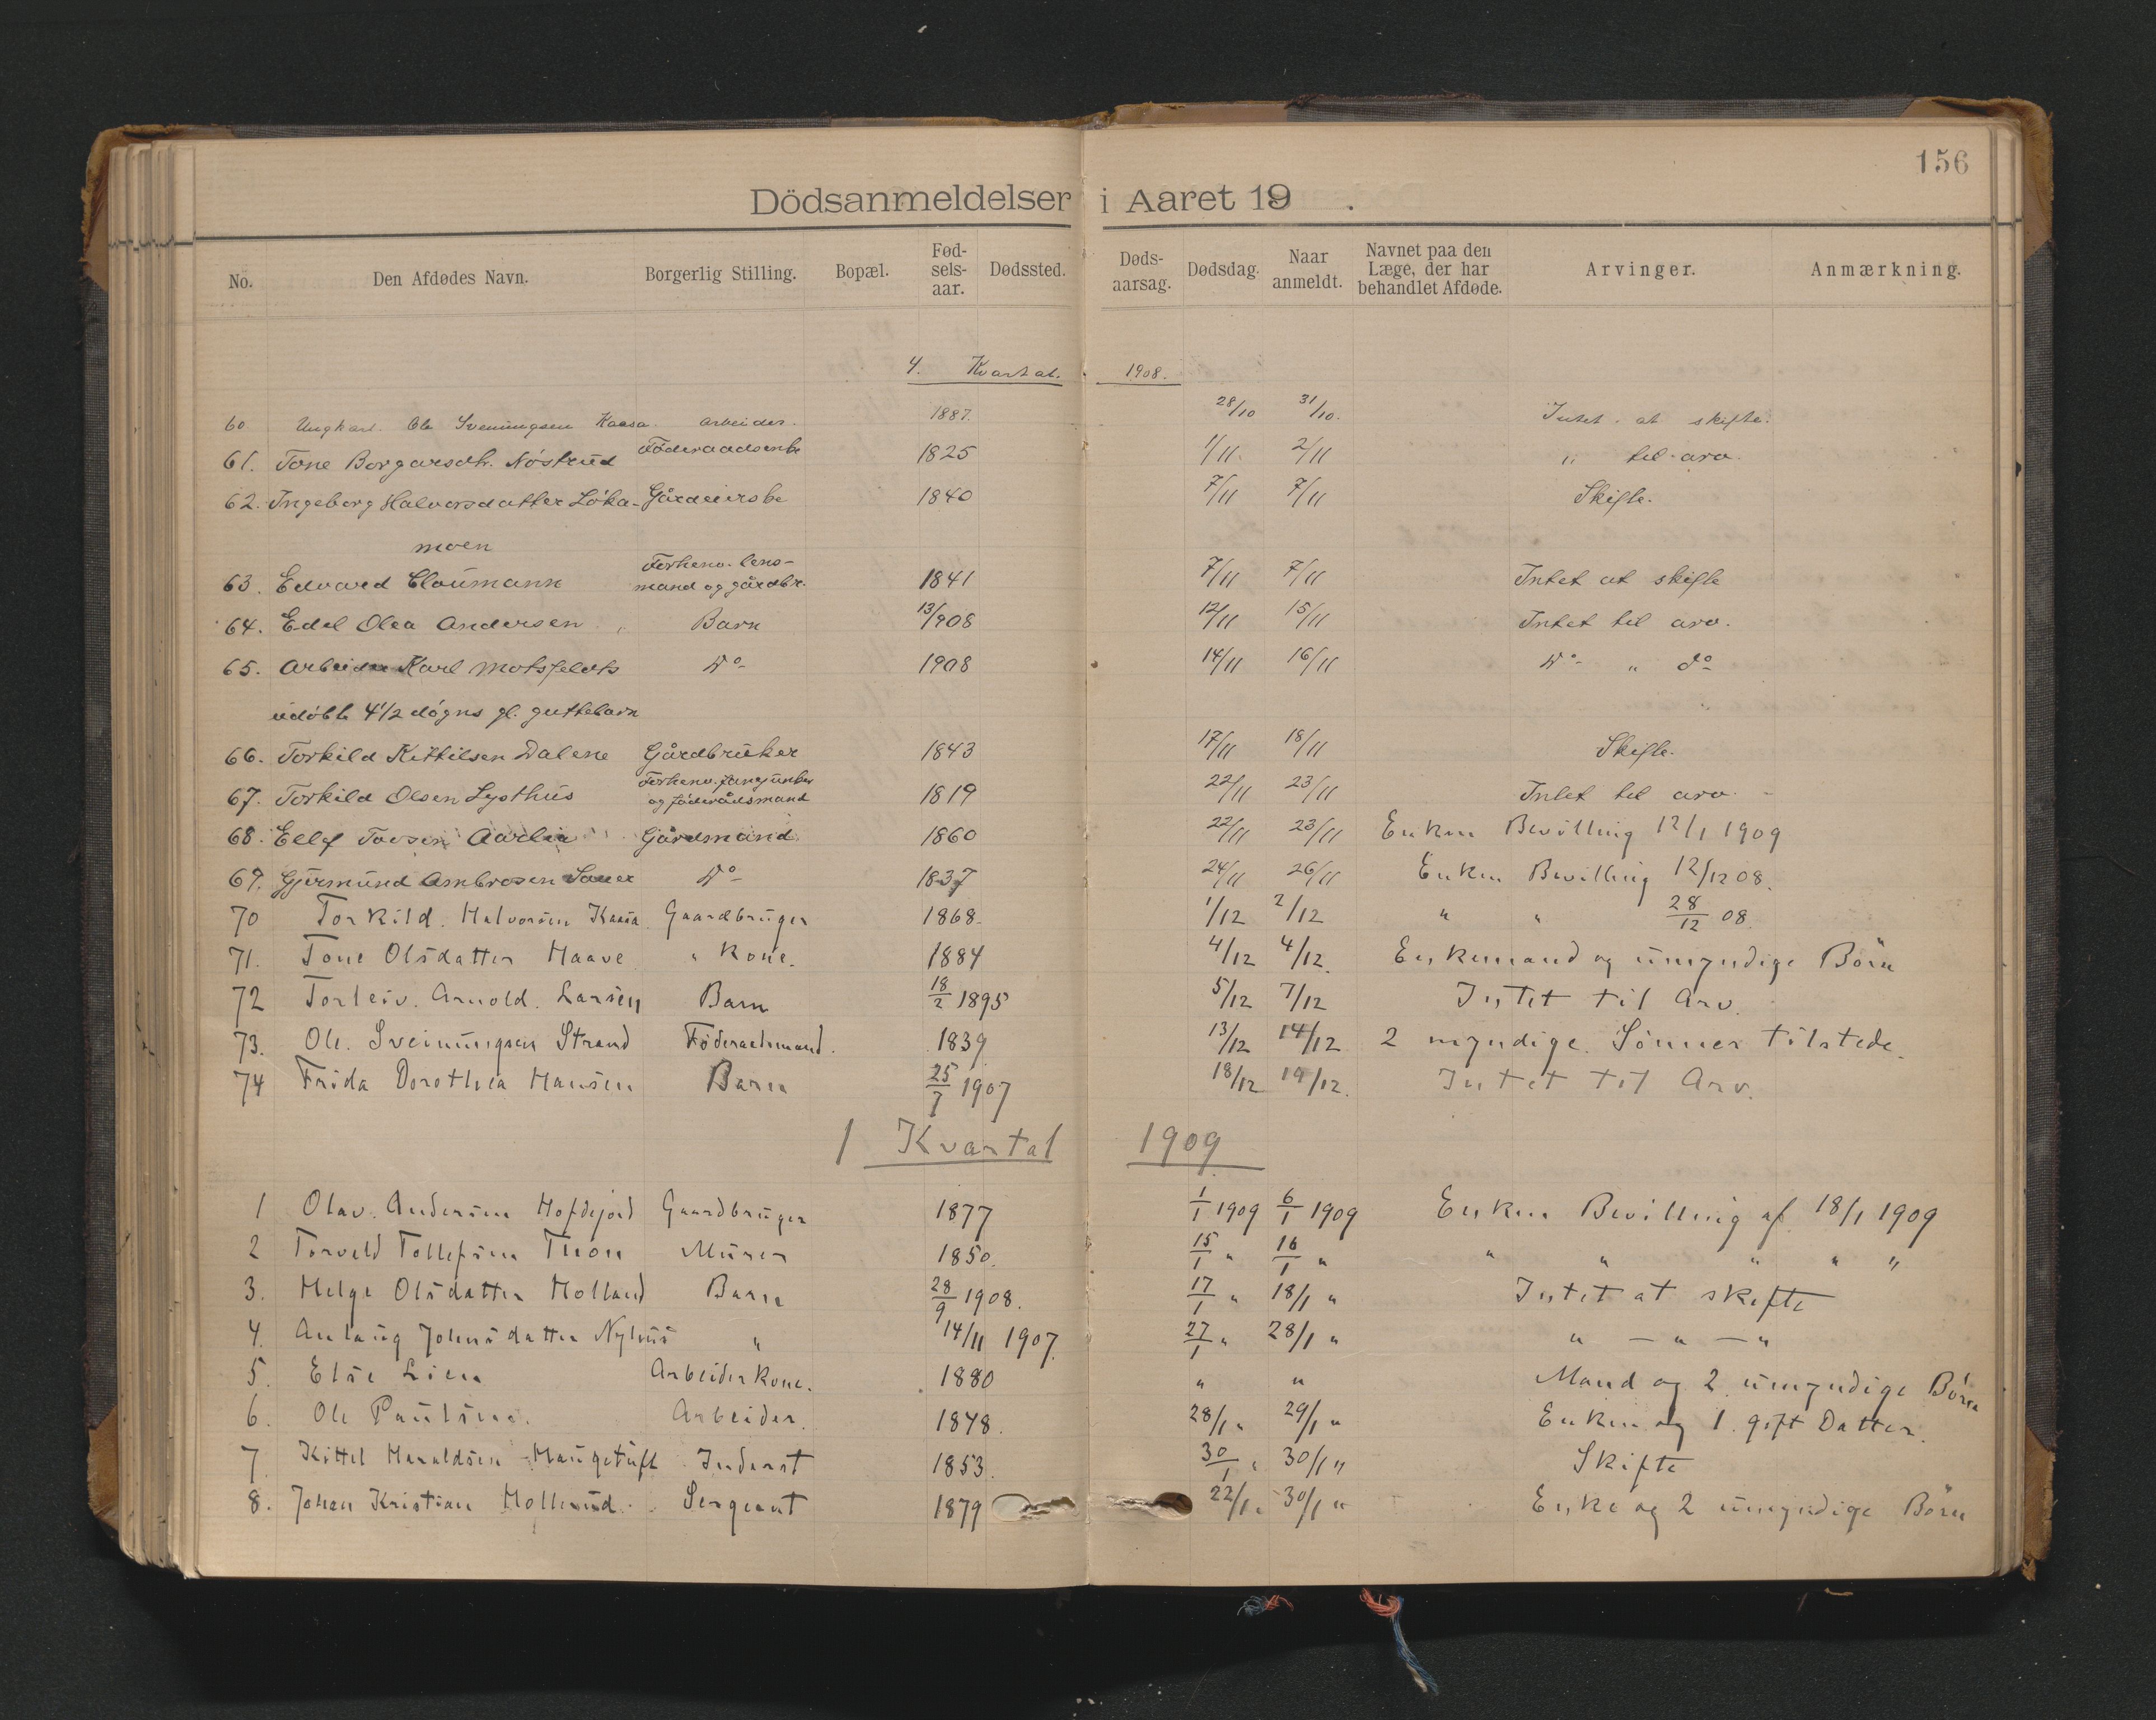 156
Dödsanmeldelser i Aaret 19 .
No. Den Afdødes Navn. Borgerlig Stilling. Bopæl. Fød-sels-aar. Dødssted. Døds-aarsag. Dødsdag. Naar anmeldt. Navnet paa den Læge, der har behandlet Afdøde. Arvinger. Anmærkning.
4. Kvartal. 1908.
60 Ungkarl Ole Sveinungsen Kaasa. Arbeider. 1887. 28/10 31/10. Intet at skifte.
61. Tone Borgarsdtr. Nöstrud Föderaadsenke 1825 1/11 2/11 " til arv.
62. Ingeborg Halvorsdatter Löka- Gårdeierske 1840 7/11 7/11 Skifte.
moen
63. Edvard Cloumann Forhenv. lens-mand og gårdbr. 1841 7/11 7/11 Intet at skifte
64. Edel Olea Andersen Barn 13/908 12/11 15/11 Intet til arv.
65. Arbeider Karl Motsfeldts Do 1908 14/11 16/11 Do " do
udöbte 4 1/2 dögns gl. guttebarn
66. Torkild Kittilsen Dalene Gårdbruker 1843 17/11 18/11 Skifte.
67. Torkild Olsen Lysthus Forhenv. og föderådsmand 1819 22/11 23/11 Intet til arv.
68. Ellef Tovsen Aarlia Gårdmand 1860 22/11 23/11 Enken Bevilling 12/1 1909
69. Gjermund Ambrosen Sauer Do 1837 24/11 26/11 Enken Bevilling 12/12 08.
70 Torkild Halvorsen Kaasa Gaardbruger 1868. 1/12 2/12 " " 28/12 08.
71. Tone Olsdatter Haave " Kone. 1884 4/12 4/12. Enkemand og umyndige Börn
72 Torleiv. Arnold. Larsen Barn 18/2 1895 5/12 7/12 Intet til Arv.
73. Ole Sveinungsen Strand Föderaadsmand. 1839 13/12 14/12 2 myndige Sönner tilstede.
74 Frida Dorothea Hansen Barn 25/7 1907 18/12 19/12. Intet til Arv.
1 Kvartal 1909
1 Olav Andersen Hofdejord Gaardbruger 1877 1/1 1909 6/1 1909 Enken Bevilling af 18/1 1909
2 Torveld Tollefsen Thon Murer 1850. 15/1 " 16/1 " " " " " "
3. Helge Olsdatter Holland Barn 28/9 1908. 17/1 " 18/1 " Intet at skifte
4. Anlaug Johnsdatter Nyhus " 14/11 1907. 27/1 " 28/1 " " — " — "
5. Else Lien Arbeiderkone. 1880 " " Mand og 2 umyndige Börn
6. Ole Paulsen. Arbeider. 1848. 28/1 " 29/1 " Enken og 1 gift Datter.
7 Kittel Haraldsen Haugetuft Inderst 1853. 30/1 " 30/1 " Skifte
8. Johan Kristian Sergeant 1879 22/1 " 30/1 " Enke og 2 umyndige Börn